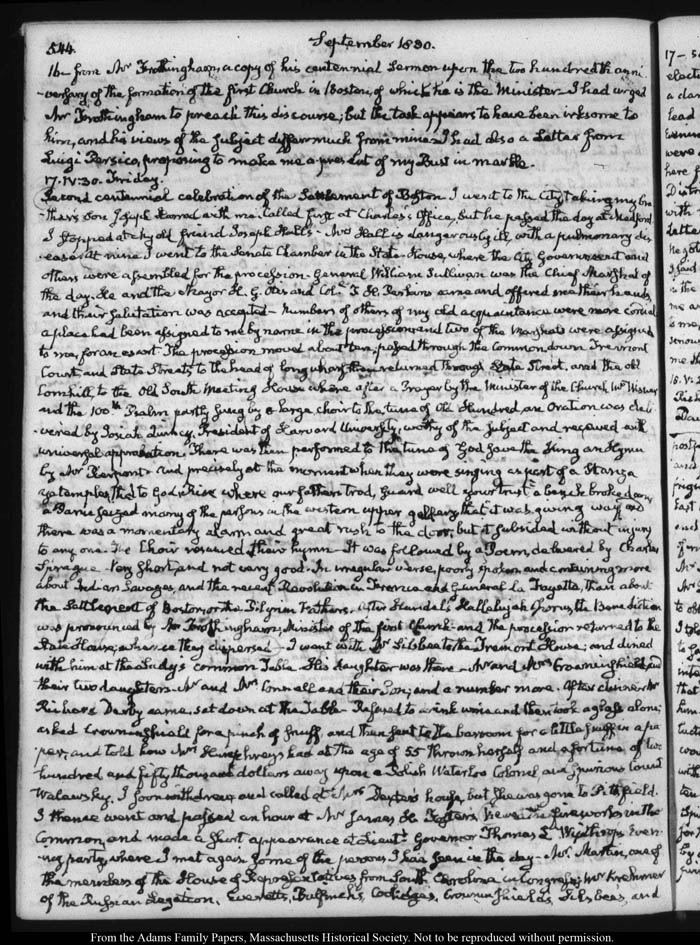 544.
September 1830.
16- from Mr Frothingham, a copy of his centennial Sermon upon the two hundredth anni-
-versary of the formation of the first Church in Boston, of which he is the Minister. I had urged
Mr Frothingham to preach this discourse; but the task appears to have been irksome to
him, and his views of the subject differ much from mine. I had also a Letter from
Luigi Persico, proposing to make me a present of my Bust in marble.
17. IV:30. Friday.
Second centennial celebration of the Settlement of Boston. I went to the City taking my bro-
-ther's Son Joseph Harrod with me. Called first at Charles's Office, but he passed the day at Medford
I stopped at my old friend Joseph Hall's- Mrs Hall is dangerously ill, with a pulmonary dis-
ease. At nine I went to the Senate Chamber in the State-House, where the City Government and
others were assembled for the procession- General William Sullivan was the Chief Marshal of
the day. He and the Mayor H. G. Otis and Col.l T. H. Perkins came and offered me their hands,
and their salutation was accepted- Numbers of others of my old acquaintance were more cordial
a place had been assigned to me by name in the procession and two of the Marshals were assigned
to me, for an escort- The procession moved about ten, passed through the Common, down Tremont
Court and State Streets to the head of long wharf then returned through State Street, and the old
Cornhill, to the Old South Meeting House where after a Prayer by the Minister of the Church Mr Wisner
and the 100th Psalm partly sung by a large choir to the tune of Old Hundred, an Oration was deli-
-vered by Josiah Quincy, President of Harvard University, worthy of the subject and received with
universal approbation. There was then performed to the tune of God save the King an Hymn
by Mr Pierpont- and precisely at the moment when they were singing as part of a Stanza
ye temples, that to God Rise where our fathers trod, Guard well your trust a bench broke down
a Panic seized many of the persons in the western upper gallery that it was giving way and
there was a momentary alarm and great rush to the door; but it subsided without injury
to any one. The Choir resumed their hymn- It was followed by a Poem, delivered by Charles
Sprague- Very short, and not very good- In irregular verse, poorly spoken and containing more
about Indian Savages, and the recent Revolution in France and General La Fayette, than about
the Settlement of Boston, or the Pilgrim Fathers. After Handel's Hallelujah Chorus, the Benediction
was pronounced by Mr Frothingham, Minister of the first Church- and the procession returned to the
State House, where they dispersed- I went with Mr Silsbee to the Tremont House; and dined
with him at the Lady's common Table. His daughter was there- Mr and Mrs Crowninshield, and
their two daughters- Mr and Mrs Connell and their Son; and a number more. After dinner Mr
Richard Derby came, sat down at the Table- Refused to drink wine and then took a glass alone;
asked Crowninshield for a pinch of snuff and then sent to the barroom for a little snuff in a pa-
per; and told how Mrs Humphreys had at the age of 55 thrown herself and a fortune of two
hundred and fifty thousand dollars away upon a Polish Waterloo Colonel and spurious Count
Walewsky. I soon withdrew and called at Mrs Dexter's house, but she was gone to Pittsfield.
I thence went and passed an hour at Mr James H. Foster's, viewed the fireworks in the
Common, and made a short appearance at Lieut.t Governor Thomas L. Winthrop's Even-
ing party, where I met again some of the persons I had seen in the day- Mr. Martin, one of
the members of the House of Representatives from South Carolina in Congress; Mr Krehmer
of the Russian Legation, Everetts, Bulfinch's, Coolidges, Crowninshields, Silsbee's, and
From the Adams Family Papers, Massachusetts Historical Society. Not to be reproduced without permission.